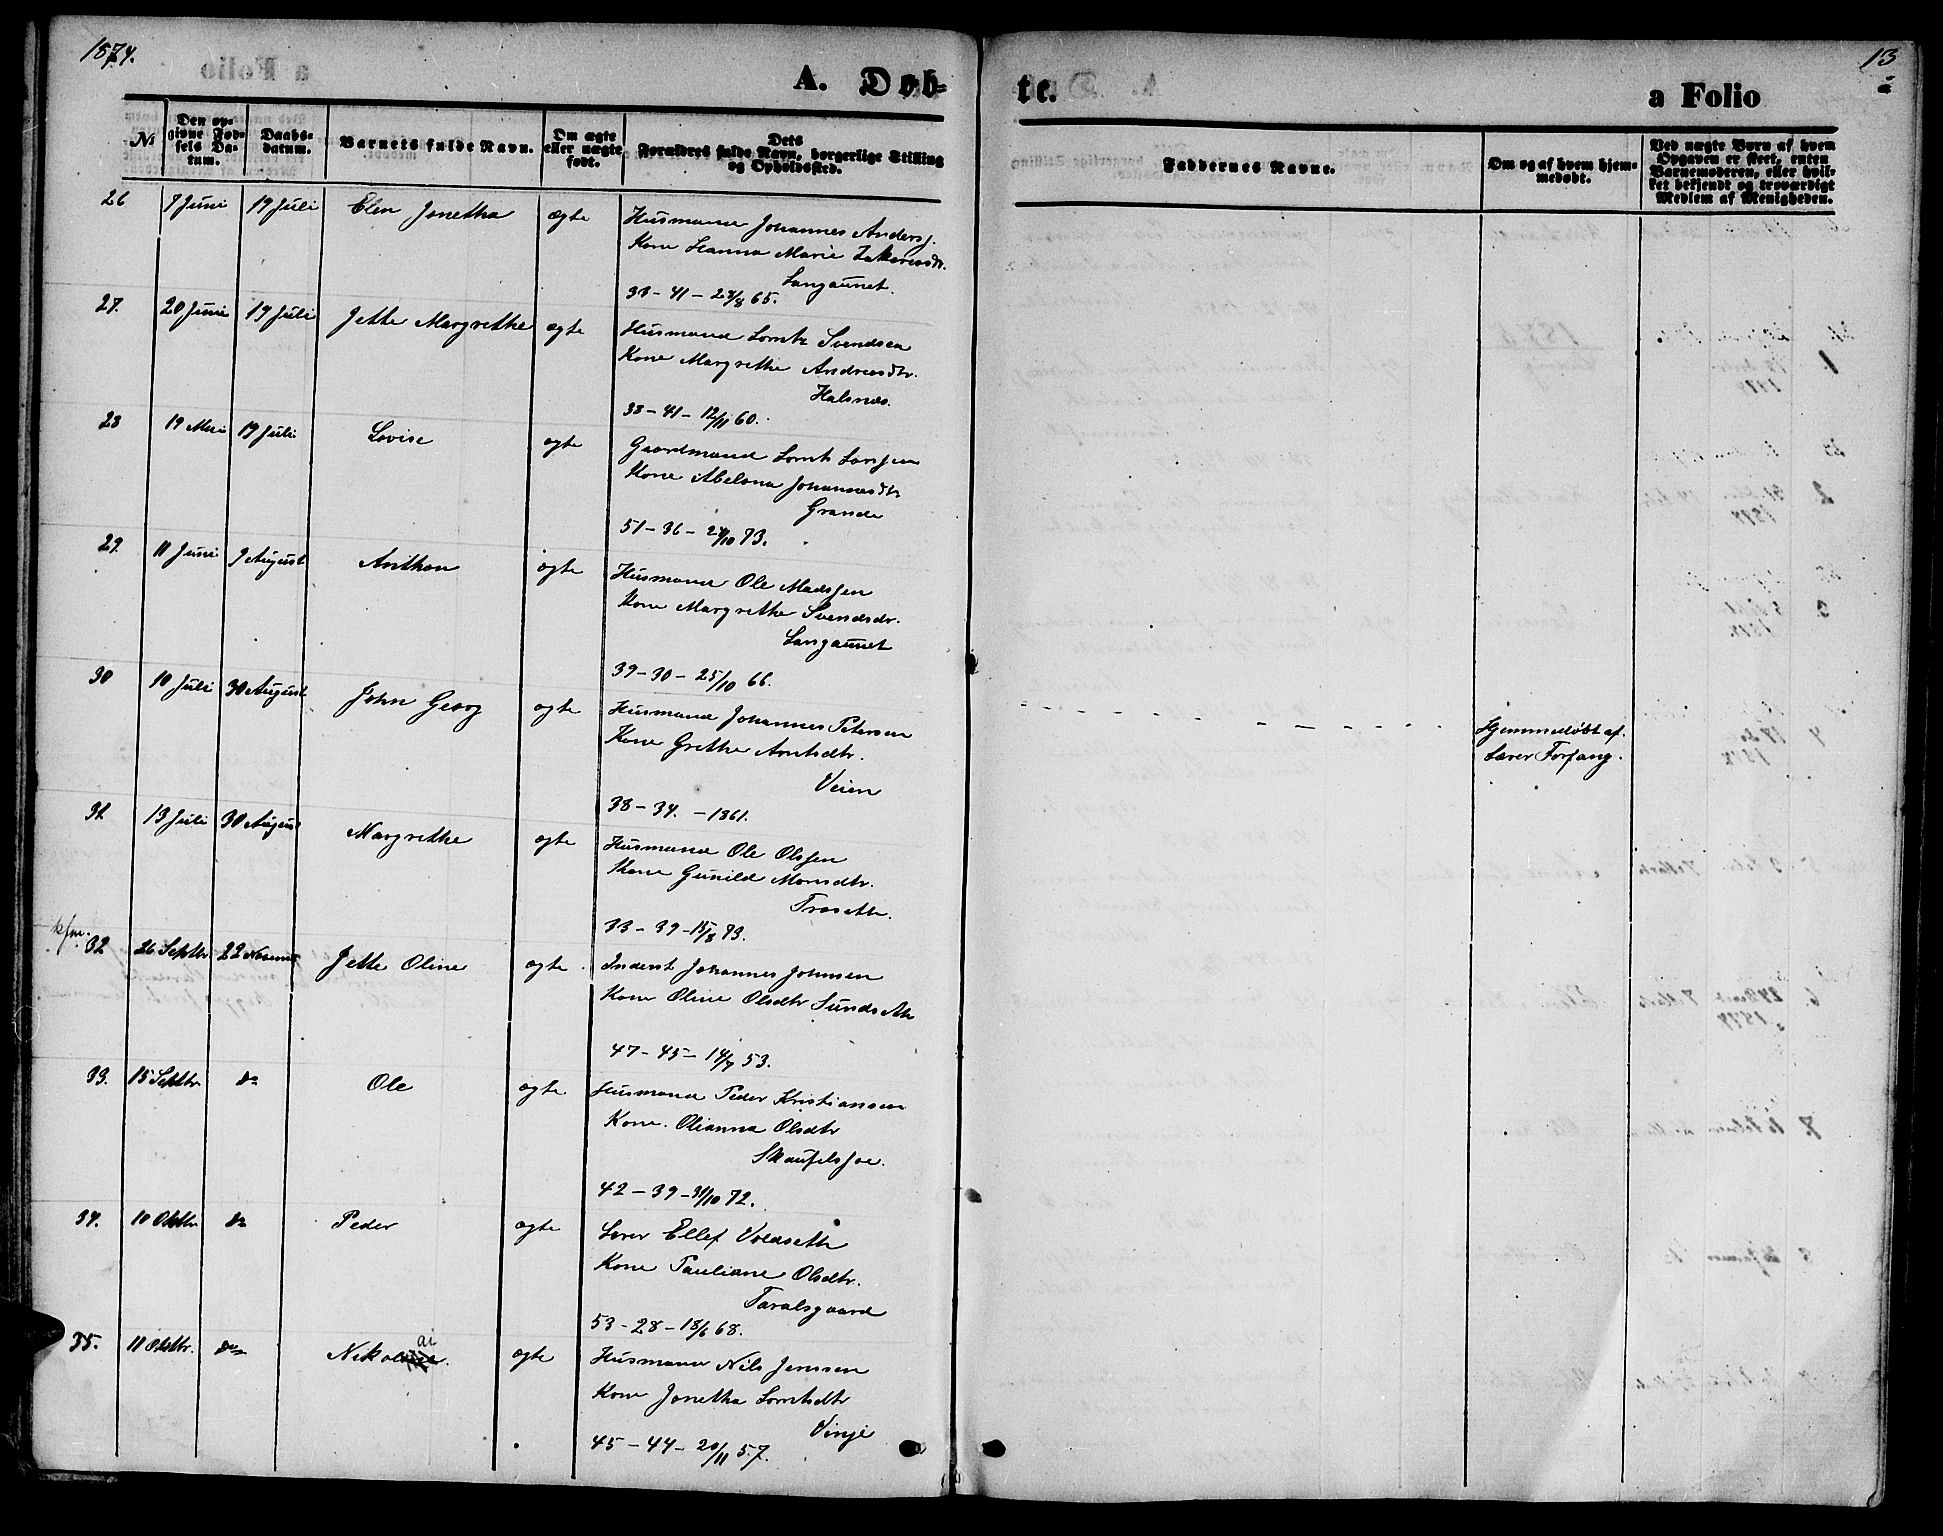 1874.
13
A. Døb-
te.
a Folio
№
Den op-
givne Fød-
sels Da-
tum.
Daabs-
datum.
Barnets fulde Navn.
Om ægte
eller uægte
født.
Dets
Forældres fulde Navn, borgerlige Stilling
og Opholdssted.
Faddernes Navne.
Om og af hvem hjem-
medøbt.
Ved uægte Børn af hvem
Opgaven er skeet, enten
Barnemoderen, eller hvil-
ket bekjendt og troværdigt
Medlem af Menigheden.
26 7 Juni 19 Juli Elen Jonetha ægte Husmand Johannes Andersj.
Kone Hanna Marie Zakariasdtr.
Langaunet.
33-41-28/8 65.
27. 20 Juni 19 Juli Jette Margrethe ægte Husmand Lorntz Svendsen
Kone Margrethe Andreasdtr.
Halsnæs.
38-41-12/11 60.
28 19 Mai 19 Juli Lovise ægte Gaardmand Lornts Larsen
Kone Abelona Johannesdtr
Grande
51-36-27/10 73.
29. 11 Juni 9 August Anthon ægte Husmand Ole Madssen
Kone Margrethe Svendsdr.
Langaunet
39-30-25/10 66.
30 10 Juli 30 August John Georg ægte Husmand Johannes Petersen
Kone Grethe Arntsdtr.
Veien
38-34.-1861.
Hjemmedøbt af
Lærer Forfang.
31. 13 Juli 30 August Margrethe ægte Husmand Ole Olssen
Kone Gunild Monsdtr.
Træsette.
33-39-15/8 73.
32 26 Septbr 22 Novemb Jette Oline ægte. Inderst Johannes Johnsen
Kone Oline Olsdtr Sundsette
47-45-14/7 53.
33. 15 Septbr do Ole ægte Husmand Peder Kristiansen
Kone. Olianna Olsdtr
Skaufelsjoe.
42-39-31/10 72.
34. 10 Oktbr do Peder ægte Lærer Ellef Voldsette
Kone Pauliane Olsdtr.
Taralsgaard
53-28-18/6 68.
35. 11 Oktbr. do Nikolai. ægte Husmann Nils Jenssen
Kone Jonetha Lorntsdtr
Vinje
45-44-20/11 57.